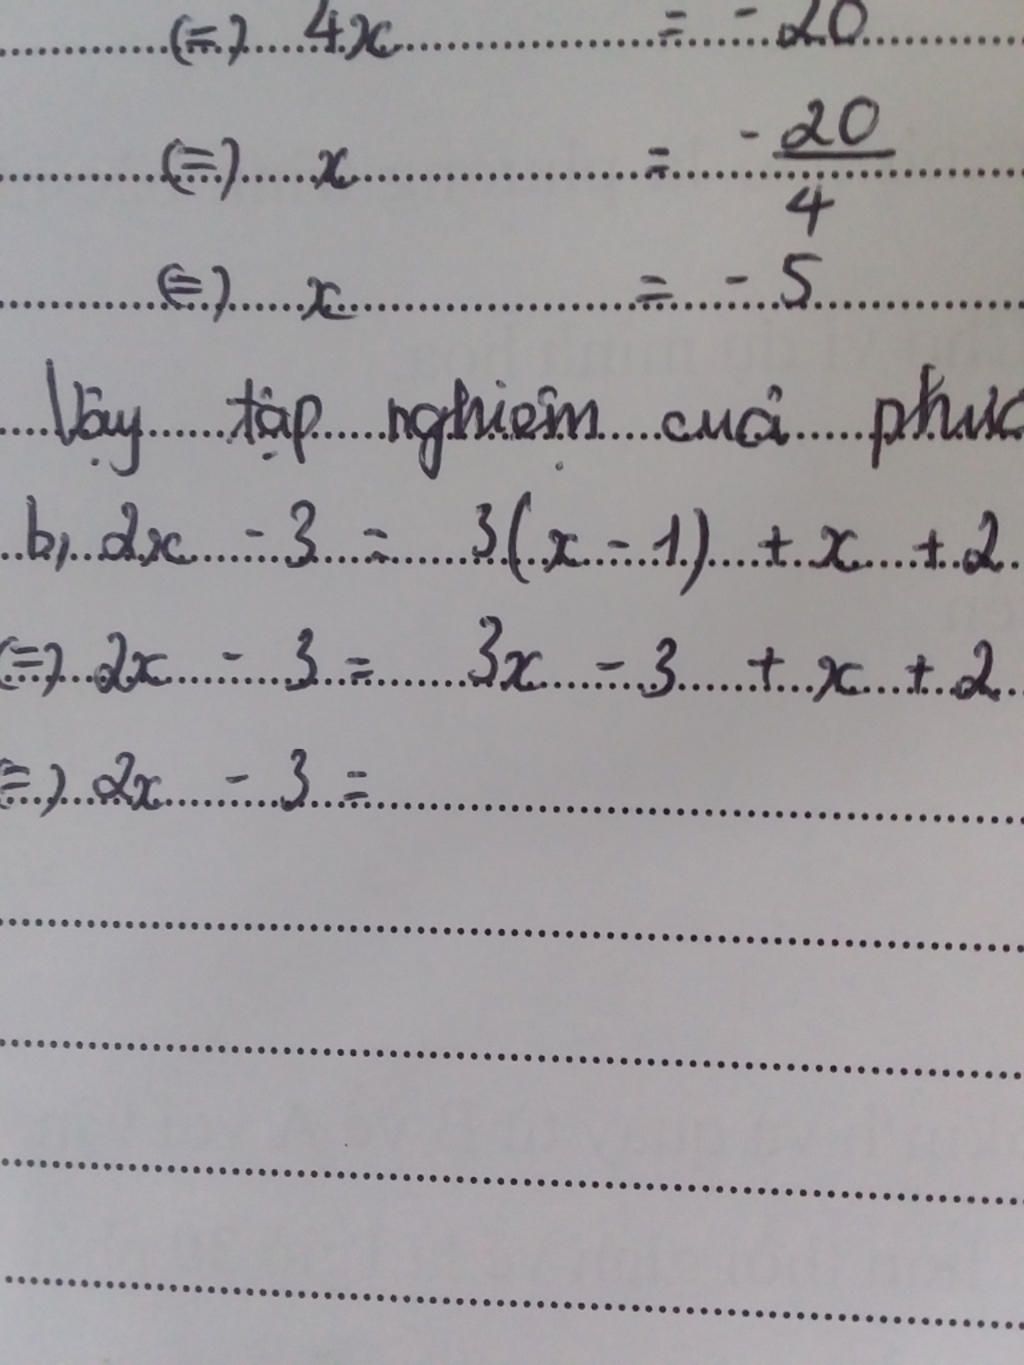 (=) 4x = - 20
(=) x = - 20/4
(=) x = - 5
Vậy tập nghiệm của
b, 2x - 3 = 3(x - 1) + x + 2
(=) 2x - 3 = 3x - 3 + x + 2
(=) 2x - 3 =